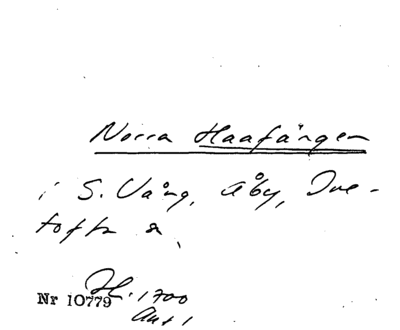 Norra Haafången
i S. Vång, Åby, Ive-
tofta s.
Nr 10779 Hl. 1700
Ant 1